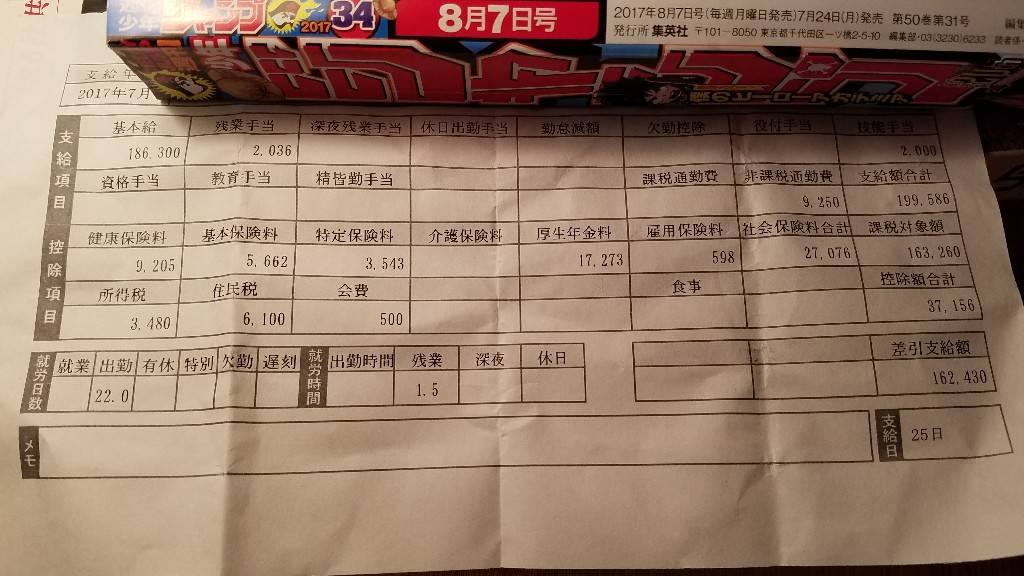 少年 ジャンプ 2017 34 8月7日号
2017年8月7日号(毎週月曜日発売)7月24日(月)発売 第50巻第31号
発行所 集英社 〒101-8050 東京都千代田区一ツ橋2-5-10 編集部・03(3230)6233
僕のヒーローアカデミア
支給年
2017年7月
支給項目
基本給 残業手当 深夜残業手当 休日出勤手当 勤怠減額 欠勤控除 役付手当 技能手当
186,300 2,036 2,000
資格手当 教育手当 精皆勤手当 課税通勤費 非課税通勤費 支給額合計
9,250 199,586
控除項目
健康保険料 基本保険料 特定保険料 介護保険料 厚生年金料 雇用保険料 社会保険料合計 課税対象額
9,205 5,662 3,543 17,273 598 27,076 163,260
所得税 住民税 会費 食事 控除額合計
3,480 6,100 500 37,156
就労日数 就業 出勤 有休 特別 欠勤 遅刻 就労時間 出勤時間 残業 深夜 休日 差引支給額
22.0 1.5 162,430
メモ 支給日 25日